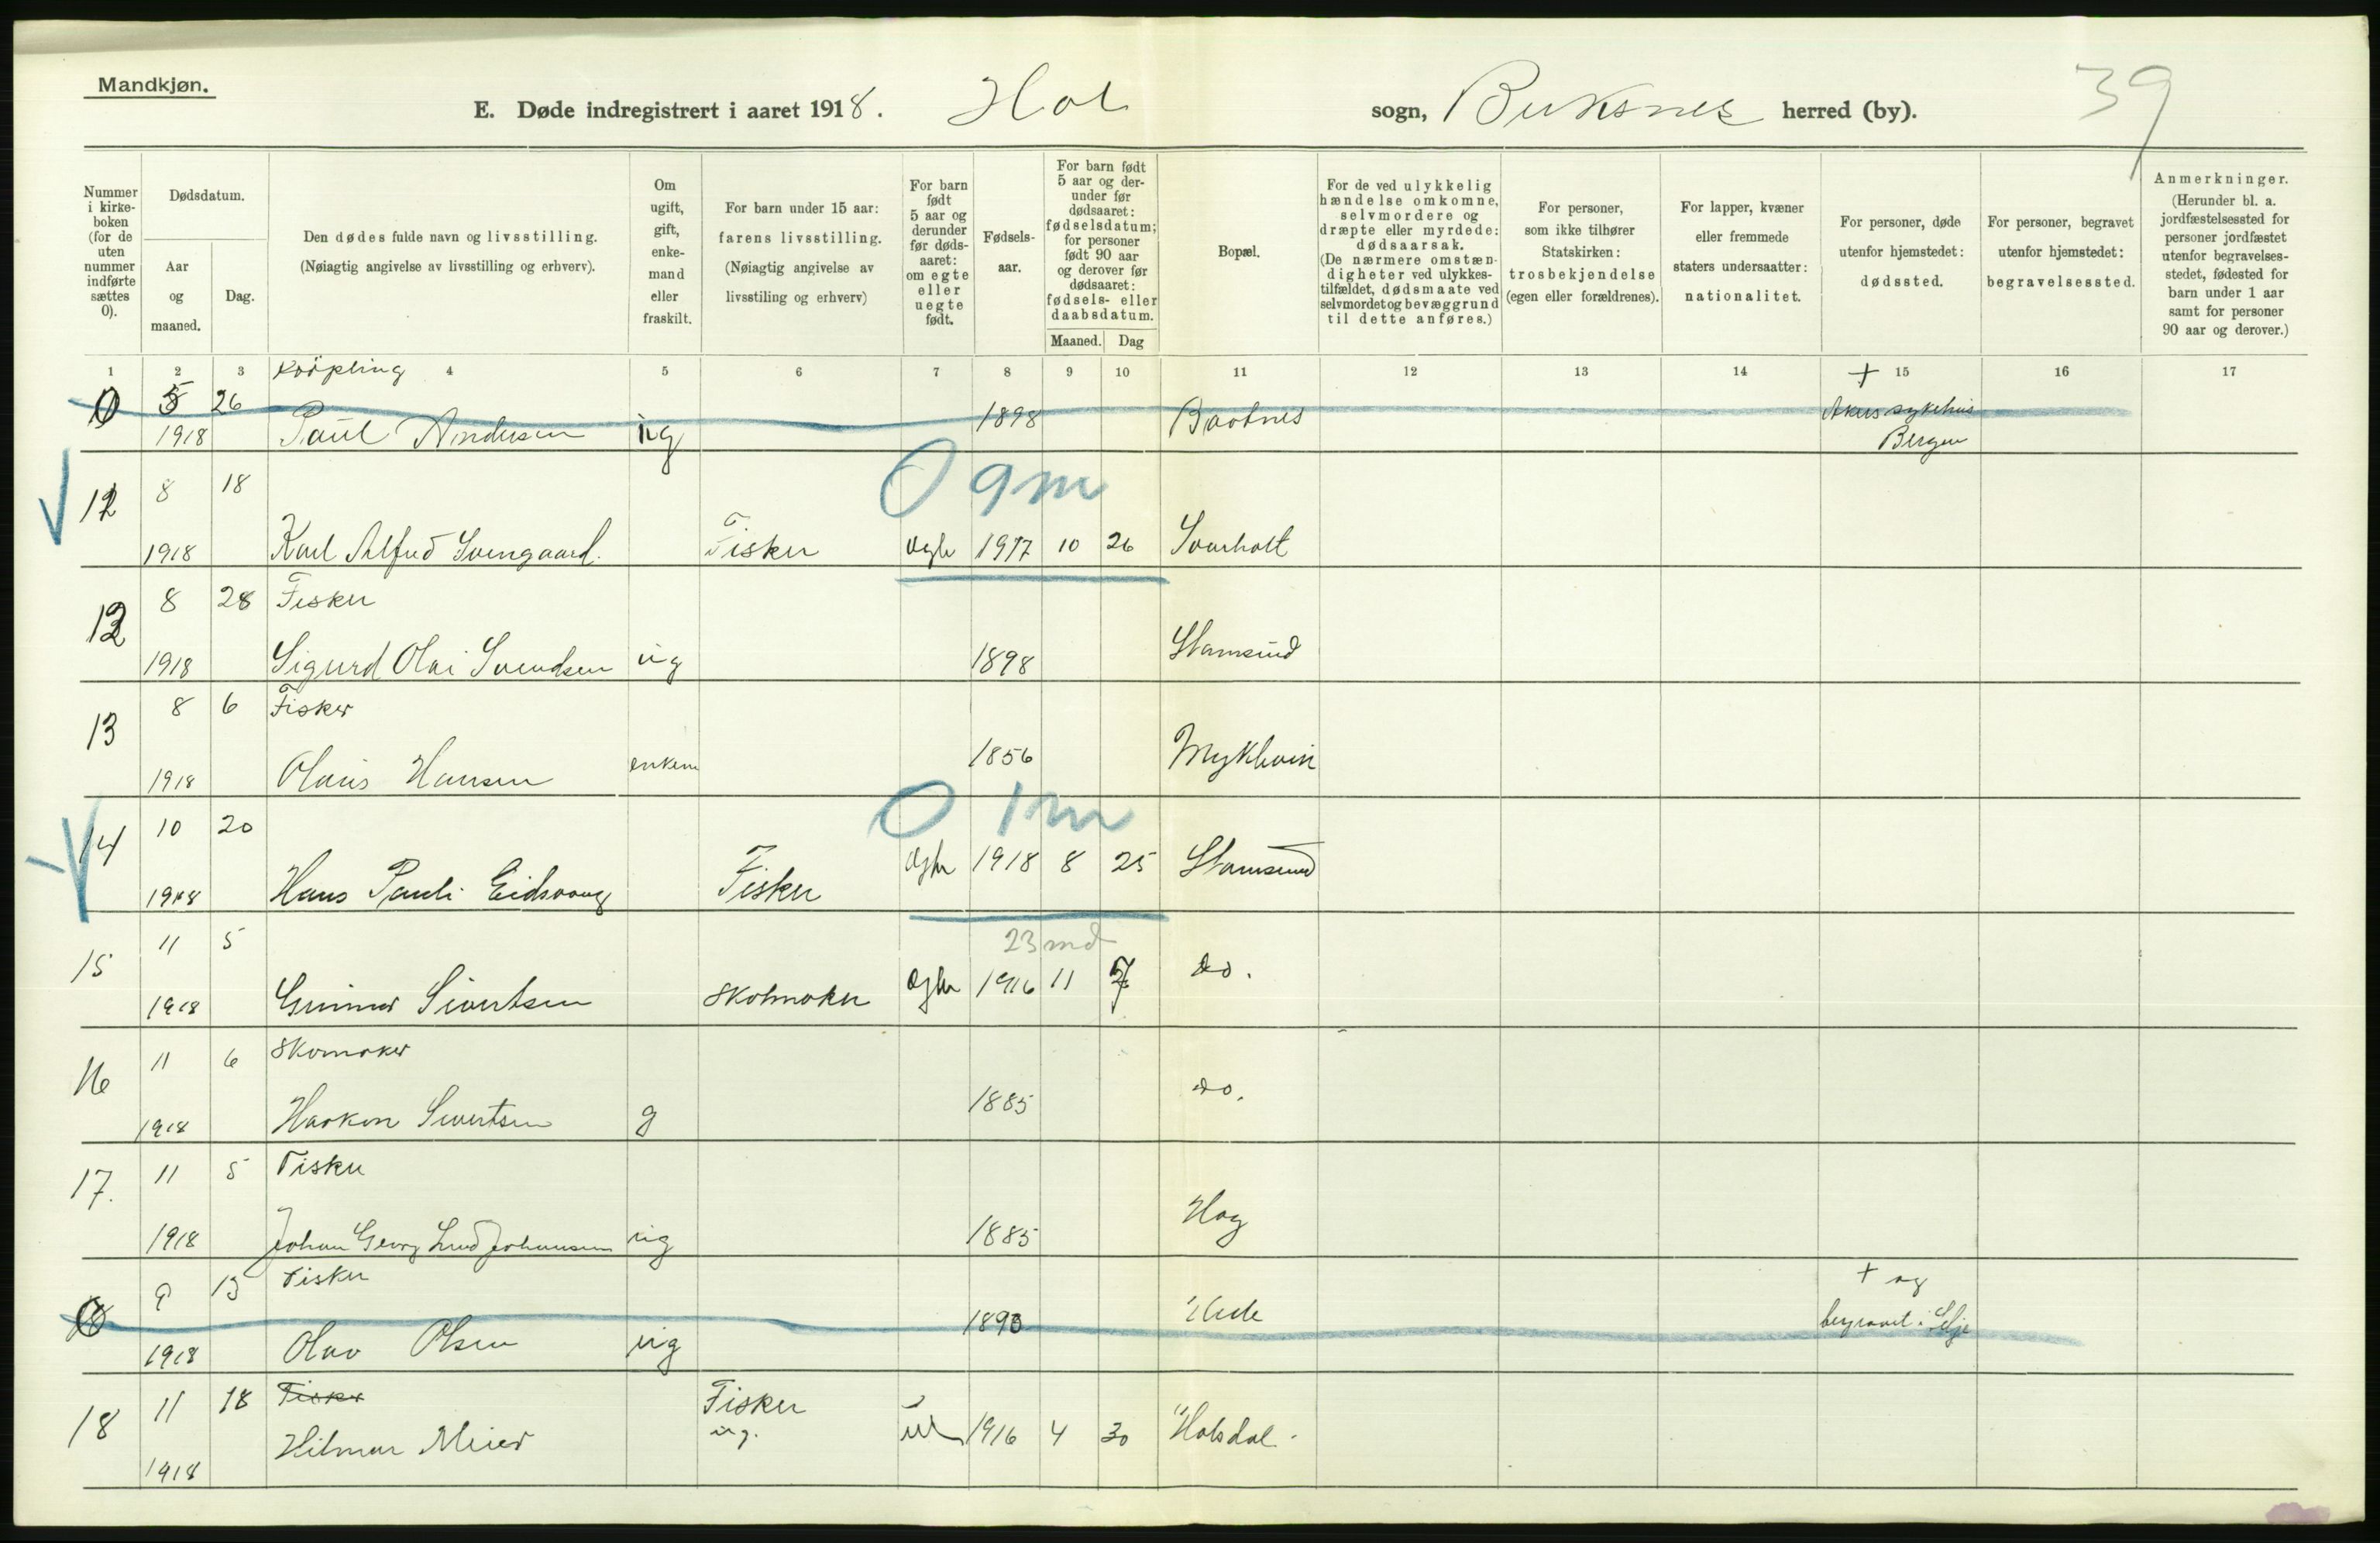 Mandkjøn.
E. Døde indregistrert i aaret 1918. Hol sogn, Buksnes herred (by). 39
Nummer i kirkeboken (for de uten nummer indførte sættes 0).
Dødsdatum.
Aar og maaned.
Dag.
Den dødes fulde navn og livsstilling.
(Nøiagtig angivelse av livsstilling og erhverv).
Om ugift, gift, enkemand eller fraskilt.
For barn under 15 aar:
farens livsstilling.
(Nøiagtig angivelse av livsstiling og erhverv)
For barn født 5 aar og derunder før dødsaaret: om egte eller uegte født.
Fødselsaar.
For barn født 5 aar og derunder før dødsaaret: fødselsdatum; for personer født 90 aar og derover før dødsaaret: fødsels- eller daabsdatum.
Maaned. Dag
Bopæl.
For de ved ulykkelig hændelse omkomne, selvmordere og dræpte eller myrdede: dødsaarsak.
(De nærmere omstændigheter ved ulykkestilfældet, dødsmaate ved selvmordet og bevæggrund til dette anføres.)
For personer, som ikke tilhører Statskirken: trosbekjendelse (egen eller forældrenes).
For lapper, kvæner eller fremmede staters undersaatter: nationalitet.
For personer, døde utenfor hjemstedet: dødssted.
For personer, begravet utenfor hjemstedet: begravelsessted.
Anmerkninger.
(Herunder bl. a. jordfæstelsessted for personer jordfæstet utenfor begravelsesstedet, fødested for barn under 1 aar samt for personer 90 aar og derover.)
1 2 3 4 5 6 7 8 9 10 11 12 13 14 15 16 17
0 5 26 +
1918 Paul Andersen ug 1898 sykehus
Bergen
0 9 m
12 8 18
1918 Karl Alfred Svengaard. Fisker 1917 10 26 Svarholt
12 8 28 Fisker
1918 Sigurd Olai Svendsen ug 1898 Stamsund
13 8 6 Fisker
1918 Olaus Hansen enkem 1856
0 1 m
14 10 20
1918 Hans Pauli Fisker 1918 8 25 Stamsund
23 md
15 11 5
1918 Gunnar Sivertsen Skomaker 1916 11 7 do.
16 11 6 Skomaker
1918 Haakon Sivertsen g 1885 do.
17. 11 5 Fisker
1918 Johan Georg Lund Johansen ug 1885 Hag
0 9 13 Fisker + og
1918 Olav Olsen ug 1893 Ure begravet i Selje
18 11 18 Fisker Fisker
ug.
1918 Hilmar Meier 1916 4 30 Holsdal